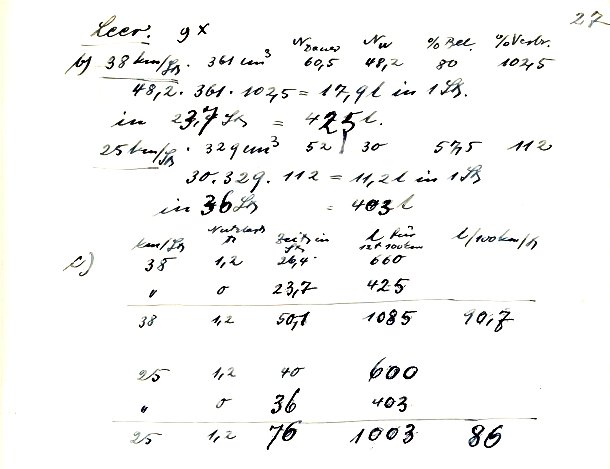 27
Leer. 9x
NDauer Nw % Bel. % Verbr.
b) 38 km/St. 361 cm³ 60,5 48,2 80 102,5
48,2 · 361 · 102,5 = 17,9 l in 1 St.
in 23,7 St = 425 l.
25 km/St · 329 cm³ 52 30 57,5 112
30 · 329 · 112 = 11,2 l in 1 St
in 36 St = 403 l
km/St Nutzlast t Zeit in St l für 12 x 100 km l/100 km/
c) 38 1,2 26,4 660
" 0 23,7 425
38 1,2 50,1 1085 90,7
25 1,2 40 600
" 0 36 403
25 1,2 76 1003 86